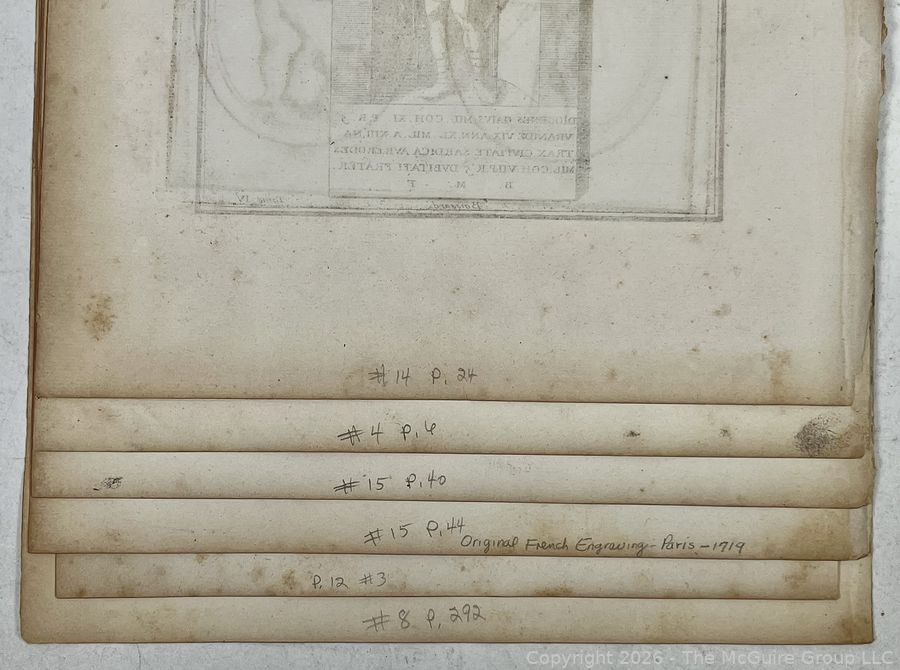 DIOGENES GAIVS MIL. COH. XI
VIX. ANN. XL. MIL. A.
TRAX CIVITATE SARDICA AVR. ERODES
MIL. COH. VII. P. R. DVBITATI FRATER.
B. M. F
Boissard. Tome IV
#14 P. 24
#4 P. 6
#15 P. 40
#15 P. 44
Original French Engraving - Paris - 1719
P. 12 #3
#8 P. 292
Copyright 2026 - The McGuire Group LLC